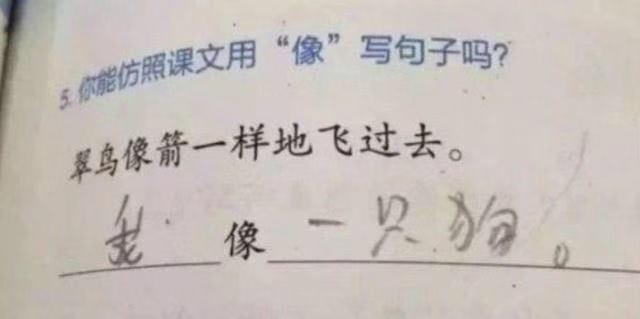 5. 你能仿照课文用“像”写句子吗？
翠鸟像箭一样地飞过去。
像一只狗。